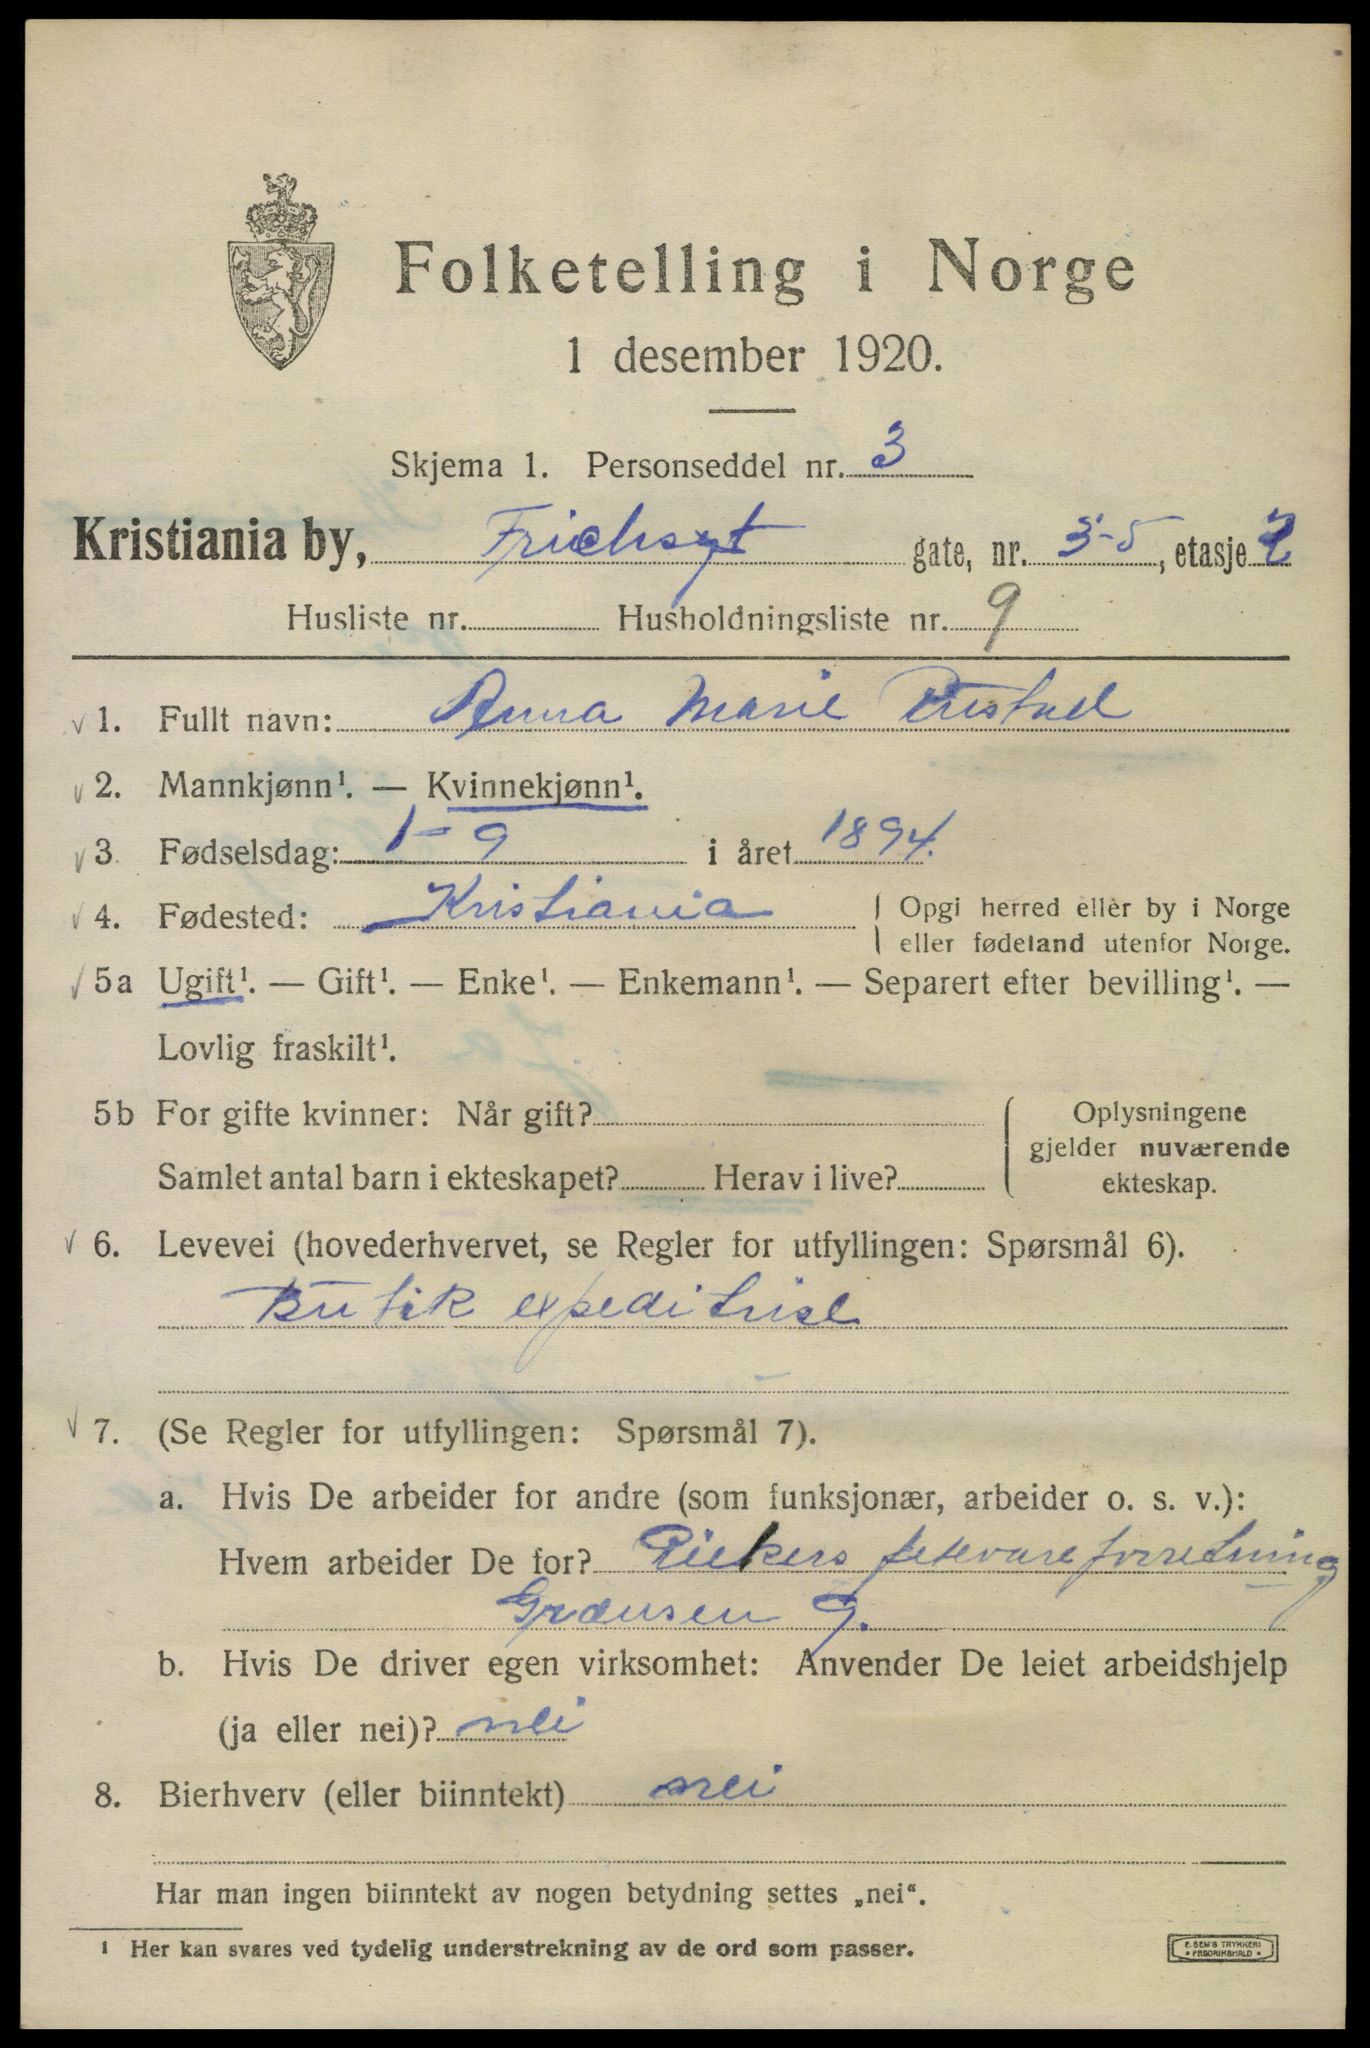 Folketelling i Norge
1 desember 1920.
Skjema 1. Personseddel nr. 3
Kristiania by, Frichsgt gate, nr. 3-5, etasje 2
Husliste nr. Husholdningsliste nr. 9
1. Fullt navn: Anna Marie
2. Mannkjønn¹. — Kvinnekjønn¹.
3. Fødselsdag: 1-9 i året 1894.
4. Fødested: Kristiania { Opgi herred eller by i Norge
eller fødeland utenfor Norge.
5a Ugift¹. — Gift¹. — Enke¹. — Enkemann¹. — Separert efter bevilling¹. —
Lovlig fraskilt¹.
5b For gifte kvinner: Når gift? { Oplysningene
gjelder nuværende
Samlet antal barn i ekteskapet? Herav i live? ekteskap.
6. Levevei (hovederhvervet, se Regler for utfyllingen: Spørsmål 6).
Butik expeditrise
7. (Se Regler for utfyllingen: Spørsmål 7).
a. Hvis De arbeider for andre (som funksjonær, arbeider o. s. v.):
Hvem arbeider De for? fetevareforretning
Grænsen 9.
b. Hvis De driver egen virksomhet: Anvender De leiet arbeidshjelp
(ja eller nei)? nei
8. Bierhverv (eller biinntekt) nei
Har man ingen biinntekt av nogen betydning settes „nei“.
¹ Her kan svares ved tydelig understrekning av de ord som passer.
E. SEM'S TRYKKERI
• FREDRIKSHALD •